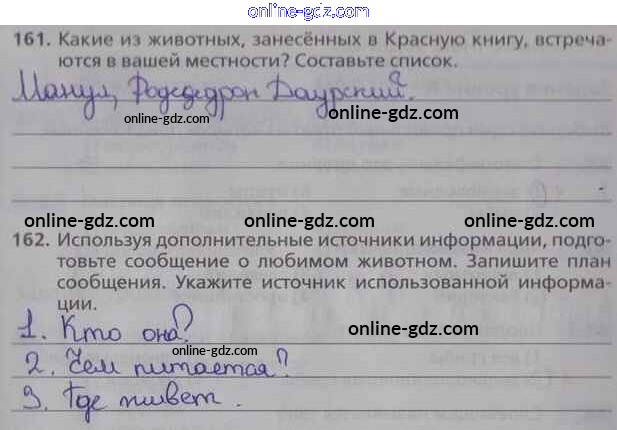 online-gdz.com
161. Какие из животных, занесённых в Красную книгу, встреча-
ются в вашей местности? Составьте список.
Манул, Рододедрон Даурский.
online-gdz.com online-gdz.com
online-gdz.com online-gdz.com online-gdz.com
162. Используя дополнительные источники информации, подго-
товьте сообщение о любимом животном. Запишите план
сообщения. Укажите источник использованной информа-
ции.
1. Кто она?
online-gdz.com
online-gdz.com
2. Чем питается?
3. Где живет.
online-gdz.com